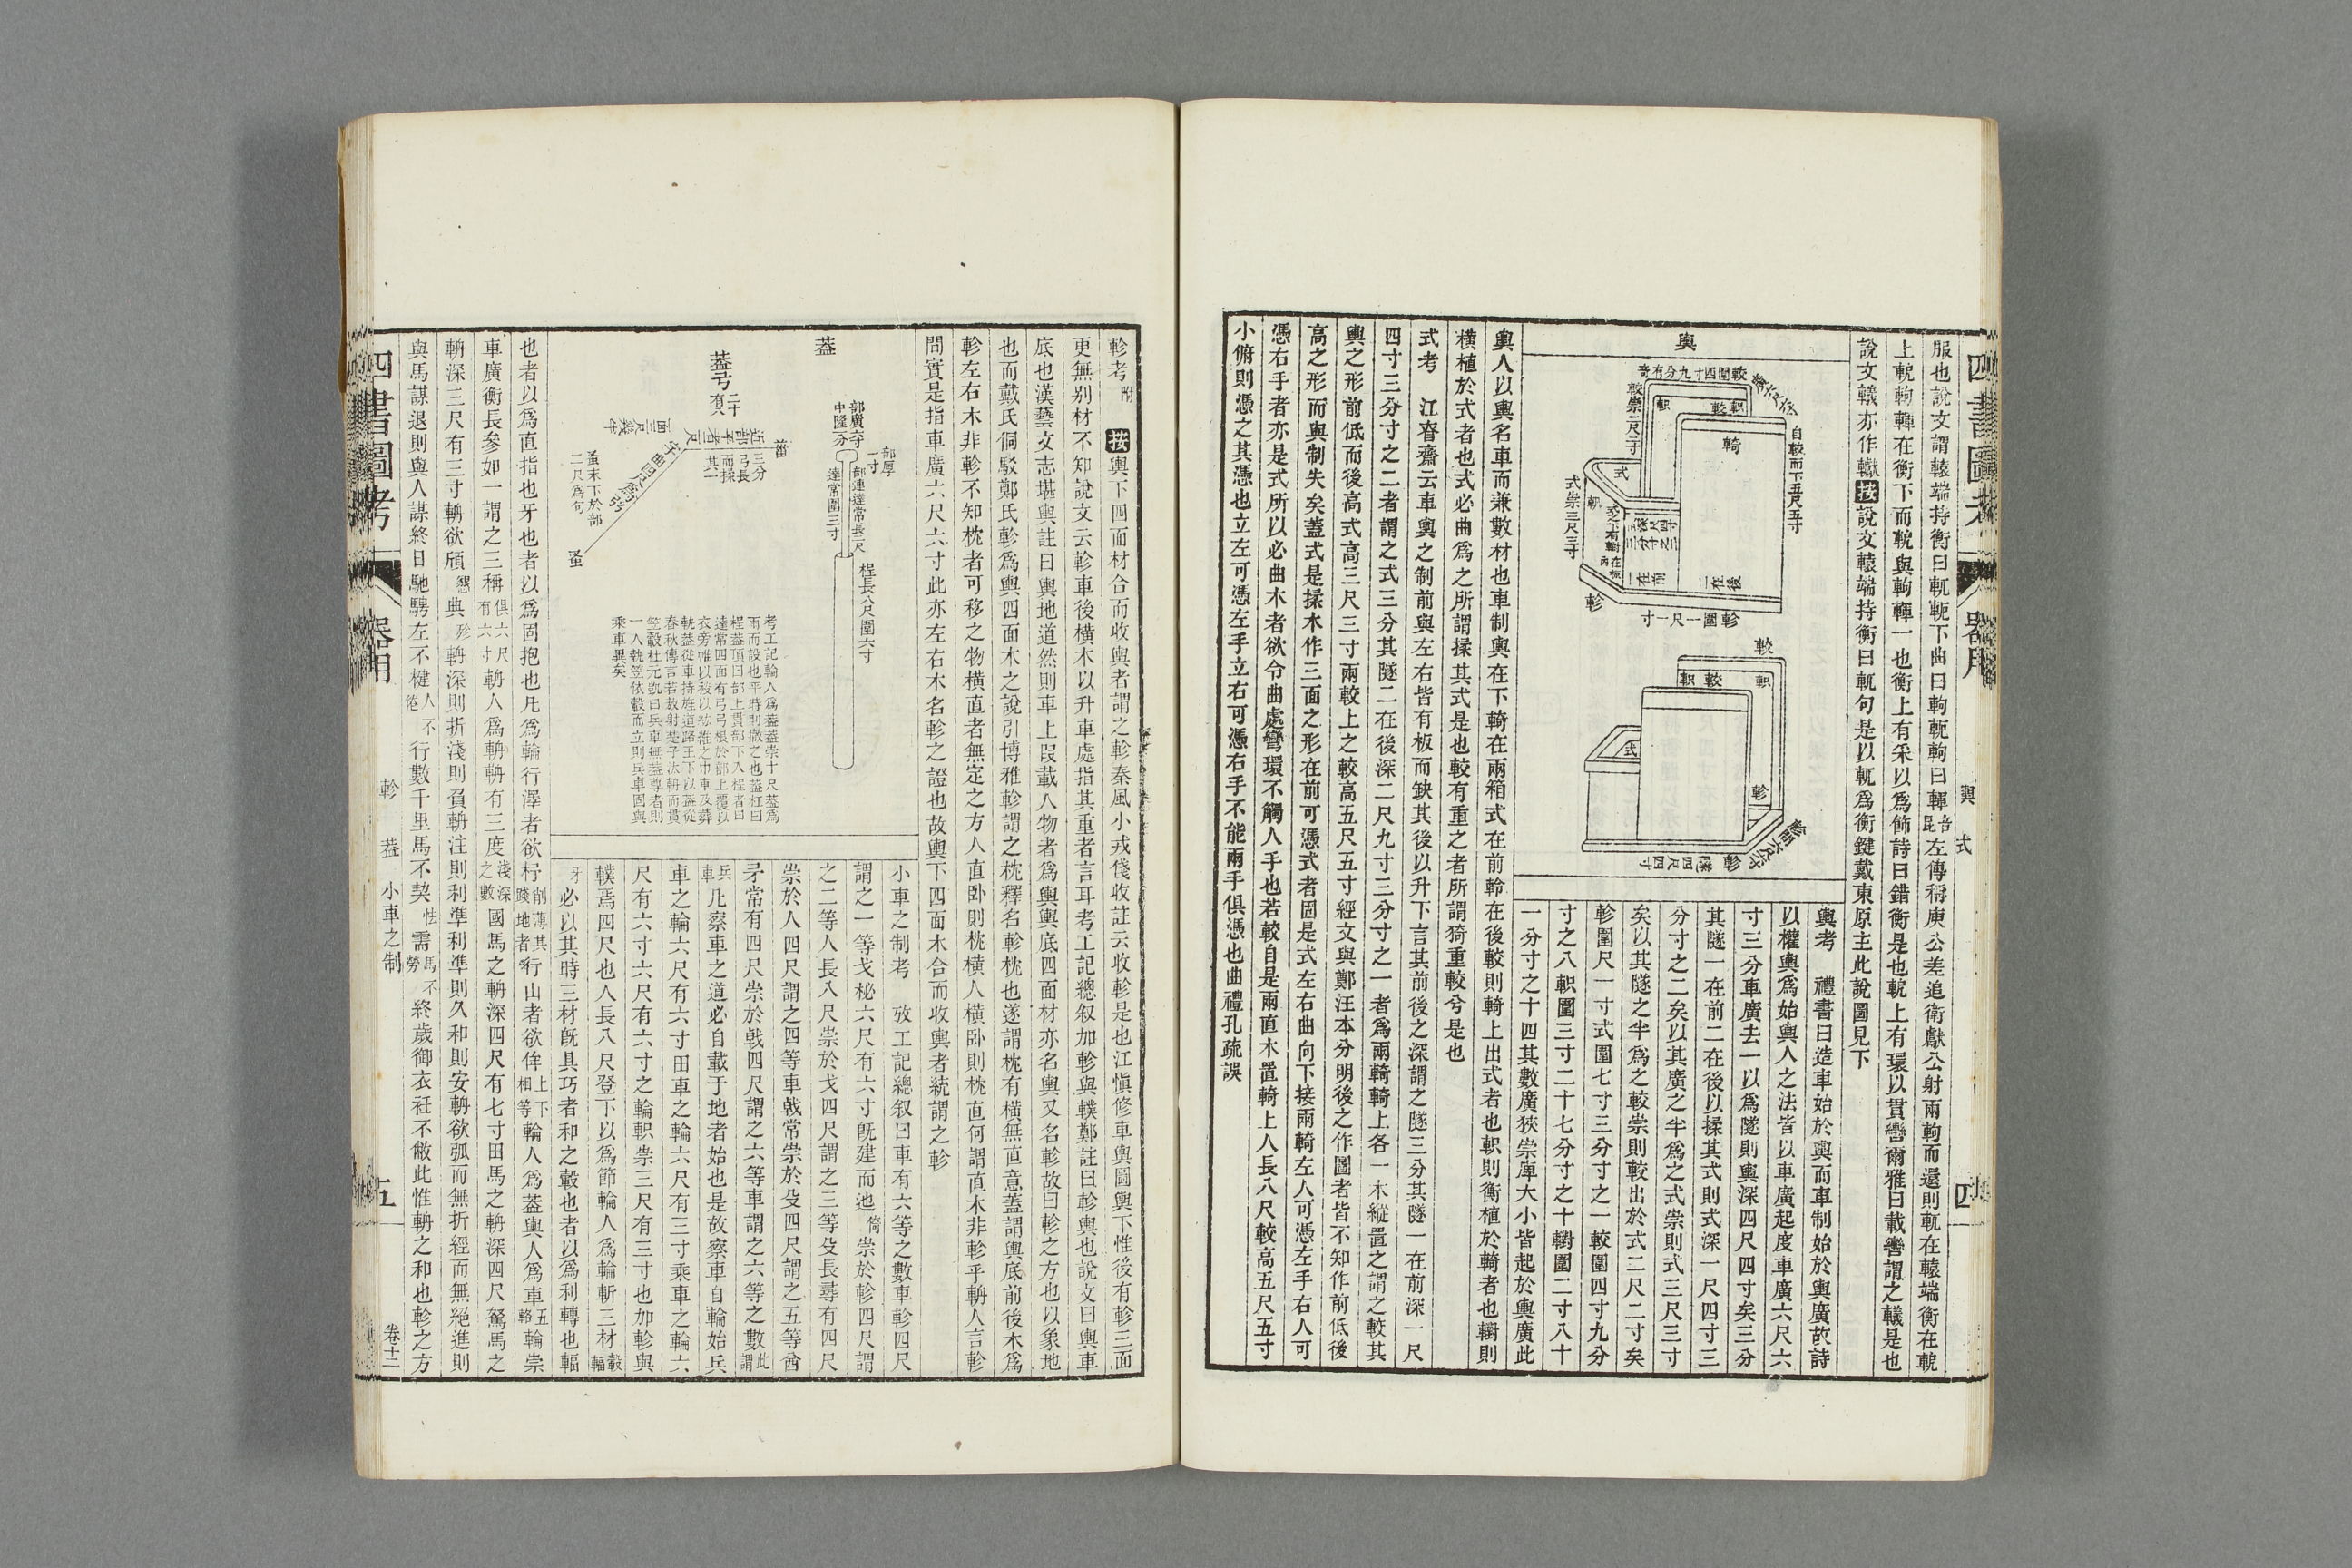 四書圖考
器用
輿 式
四
服也說文謂轅端持衡曰軏軛下曲曰軥軛軥曰楎音昆左傳稱庾公差追衛獻公射兩軥而還則軏在轅端衡在軶
上軶軥楎在衡下而軶與軥楎一也衡上有采以爲飾詩曰錯衡是也軶上有環以貫轡爾雅曰載轡謂之轙是也
說文轙亦作钀按說文轅端持衡曰軏句是以軏爲衡鍵戴東原主此說圖見下
輿
較圍四寸九分有奇
較崇二尺二寸
自較而下五尺五寸
輢
式
式崇三尺三寸
軫
軫圍一尺一寸
一在前
二在後
較
軹
較
軹
式
軫
輿考 禮書曰造車始於輿而車制始於輿廣故詩
以權輿爲始輿人之法皆以車廣起度車廣六尺六
寸三分車廣去一以爲隧則輿深四尺四寸矣三分
其隧一在前二在後以揉其式則式深一尺四寸三
分寸之二矣以其廣之半爲之式崇則式三尺三寸
矣以其隧之半爲之較崇則較出於式二尺二寸矣
軫圍尺一寸式圍七寸三分寸之一較圍四寸九分
寸之八軹圍三寸二十七分寸之十轛圍二寸八十
一分寸之十四其數廣狹崇庳大小皆起於輿廣此
輿人以輿名車而兼數材也車制輿在下輢在兩箱式在前軨在後較則輢上出式者也軹則衡植於輢者也轛則
橫植於式者也式必曲爲之所謂揉其式是也較有重之者所謂猗重較兮是也
式考 江眘齋云車輿之制前與左右皆有板而缺其後以升下言其前後之深謂之隧三分其隧一在前深一尺
四寸三分寸之二者謂之式三分其隧二在後深二尺九寸三分寸之一者爲兩輢輢上各一木縱置之謂之較其
輿之形前低而後高式高三尺三寸兩較上之較高五尺五寸經文與鄭汪本分明後之作圖者皆不知作前低後
高之形而輿制失矣蓋式是揉木作三面之形在前可憑式者固是式左右曲向下接兩輢左人可憑左手右人可
憑右手者亦是式所以必曲木者欲令曲處彎環不觸人手也若較自是兩直木置輢上人長八尺較高五尺五寸
小俯則憑之其憑也立左可憑左手立右可憑右手不能兩手俱憑也曲禮孔疏誤
軫考附 按輿下四面材合而收輿者謂之軫秦風小戎俴收註云收軫是也江愼修車輿圖輿下惟後有軫三面
更無别材不知說文云軫車後橫木以升車處指其重者言耳考工記總叙加軫與轐鄭註曰軫輿也說文曰輿車
底也漢藝文志堪輿註曰輿地道然則車上叚載人物者爲輿輿底四面材亦名輿又名軫故曰軫之方也以象地
也而戴氏侗駁鄭氏軫爲輿四面木之說引博雅軫謂之枕釋名軫枕也遂謂枕有橫無直意蓋謂輿底前後木爲
軫左右木非軫不知枕者可移之物橫直者無定之方人直卧則枕橫人橫卧則枕直何謂直木非軫乎輈人言軫
間實是指車廣六尺六寸此亦左右木名軫之證也故輿下四面木合而收輿者統謂之軫
葢
葢弓二十有八
部廣六寸
中隆一分
部厚
一寸
部連達常長二尺
達常圍三寸
桯長八尺圍六寸
近部平者二尺
三分
弓長
而揉
其一
蚤末下於部
二尺爲句
蚤
考工記輪人爲葢葢崇十尺葢爲
雨而設也平時則撤之也葢杠曰
桯葢頂曰部上貫部下入桯者曰
達常四面有弓弓根於部上覆以
衣旁帷以裧以紘維之巾車及葬
執葢從車持旌道路王下以葢從
春秋傳言若敖射葢子汰輈而貫
笠轂杜元凱曰兵車無葢尊者則
一人執笠依轂而立則兵車固與
乘車異矣
小車之制考 攷工記總叙曰車有六等之數車軫四尺
謂之一等戈柲六尺有六寸旣建而迆倚崇於軫四尺謂
之二等人長八尺崇於戈四尺謂之三等殳長尋有四尺
崇於人四尺謂之四等車戟常崇於殳四尺謂之五等酋
矛常有四尺崇於戟四尺謂之六等車謂之六等之數此謂
兵車凡察車之道必自載于地者始也是故察車自輪始兵
車之輪六尺有六寸田車之輪六尺有三寸乘車之輪六
尺有六寸六尺有六寸之輪軹崇三尺有三寸也加軫與
轐焉四尺也人長八尺登下以爲節輪人爲輪斬三材轂輻
牙必以其時三材旣具巧者和之轂也者以爲利轉也輻
也者以爲直指也牙也者以爲固抱也凡爲輪行澤者欲杼削薄其踐地者行山者欲侔上下相等輪人爲葢輿人爲車五路輪崇
車廣衡長參如一謂之三稱俱六尺有六寸輈人爲輈輈有三度淺深之數國馬之輈深四尺有七寸田馬之輈深四尺駑馬之
輈深三尺有三寸輈欲頎懇典殄輈深則折淺則負輈注則利準利準則久和則安輈欲弧而無折經而無絕進則
與馬謀退則與人謀終日馳騁左不楗人不倦行數千里馬不契怯需馬不勞終歲御衣衽不敝此惟輈之和也軫之方
四書圖考
器用
軫 葢 小車之制
五
卷十二